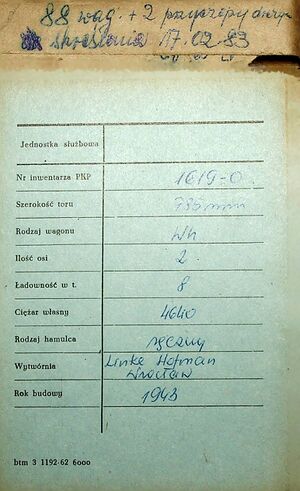 88 wag. + 2 przyczepy
skreślenia 17.02.83
Jednostka służbowa
Nr inwentarza PKP 1619-0
Szerokość toru 785 mm
Rodzaj wagonu Wh
Ilość osi 2
Ładowność w t. 8
Ciężar własny 4640
Rodzaj hamulca ręczny
Wytwórnia Linke Hofman
Wrocław
Rok budowy 1943
btm 3 1192-62 6000